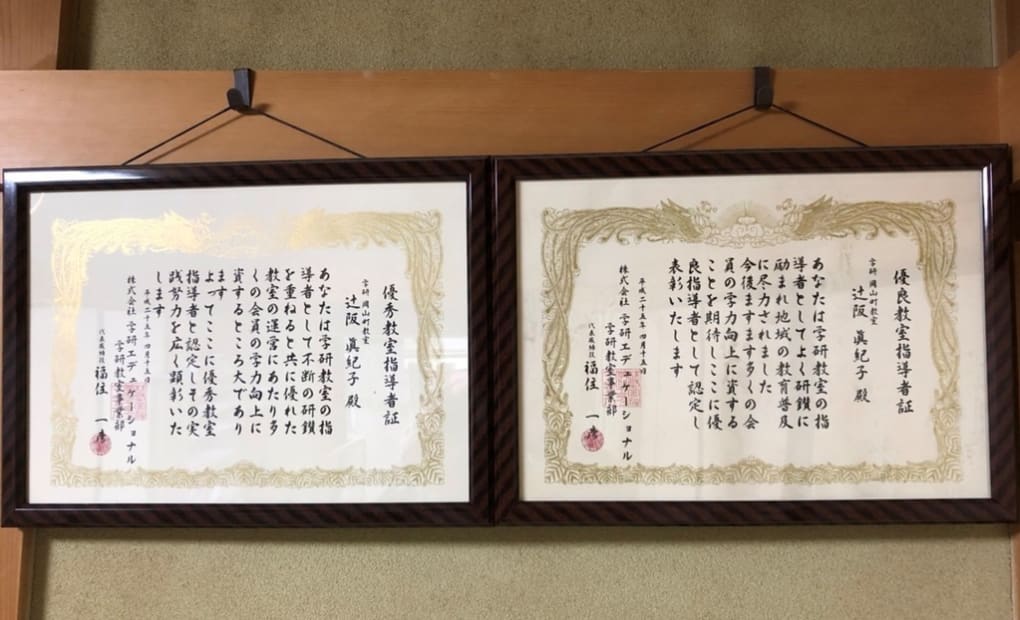 優良教室指導者証
学研 岡山町教室
辻阪 眞紀子 殿
あなたは学研教室の指
導者としてよく研鑽に
励まれ地域の教育普及
に尽力されました
今後ますます多くの会
員の学力向上に資する
ことを期待しここに優
良指導者として認定し
表彰いたします
平成二十五年 四月十五日
株式会社 学研エデュケーショナル
学研教室事業部
代表取締役 福住 一彦
優秀教室指導者証
学研 岡山町教室
辻阪 眞紀子 殿
あなたは学研教室の指
導者として不断の研鑽
を重ねると共に優れた
教室の運営にあたり多
くの会員の学力向上に
資するところ大であり
ます
よってここに優秀教室
指導者と認定しその実
践努力を広く顕彰いた
します
平成二十五年 四月十五日
株式会社 学研エデュケーショナル
学研教室事業部
代表取締役 福住 一彦